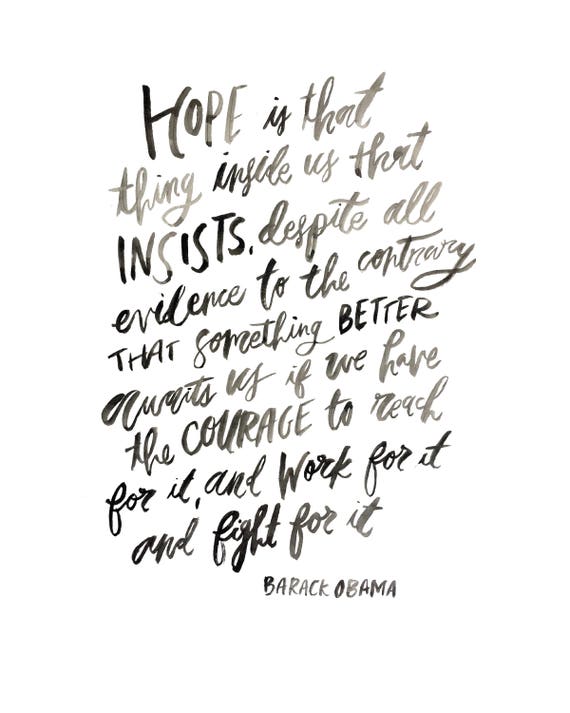 HOPE is that
thing inside us that
INSISTS, despite all
evidence to the contrary
THAT something BETTER
awaits us if we have
the COURAGE to reach
for it, and work for it
and fight for it
BARACK OBAMA